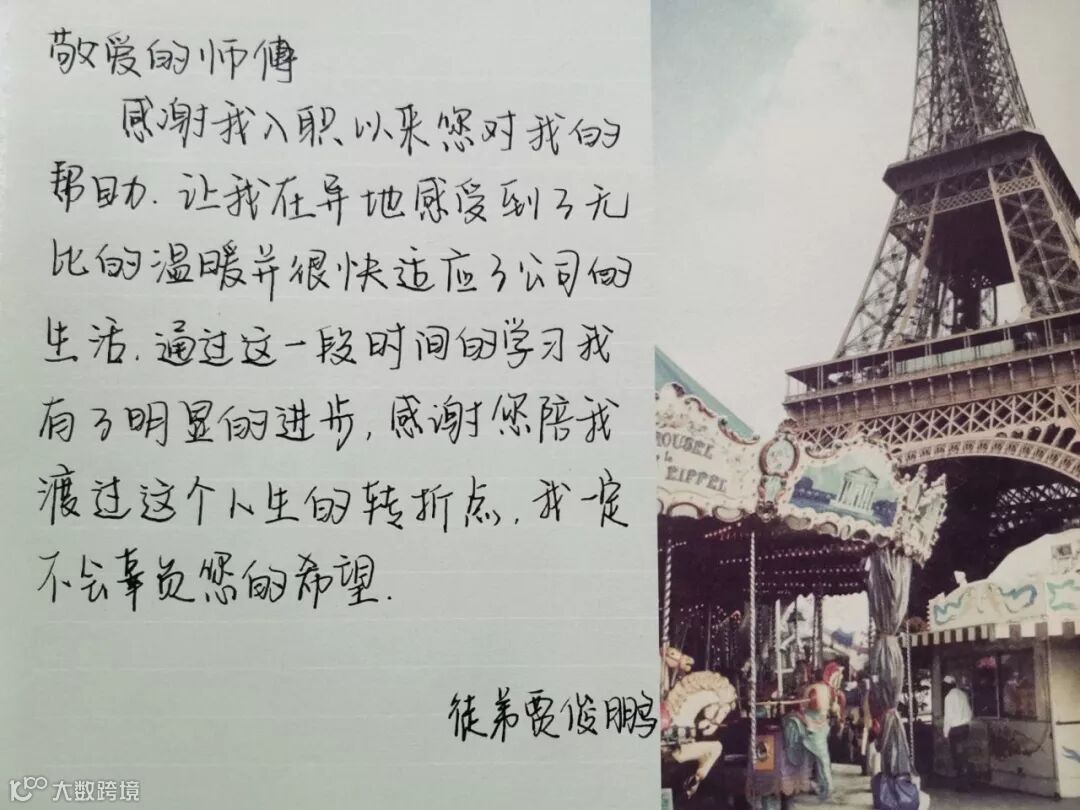 敬爱的师傅
感谢我入职以来您对我的
帮助.让我在异地感受到了无
比的温暖并很快适应了公司的
生活.通过这一段时间的学习我
有了明显的进步,感谢您陪我
渡过这个人生的转折点,我一定
不会辜负您的希望.
徒弟贾俊鹏
ROUSEL
EIFFEL
大数跨境